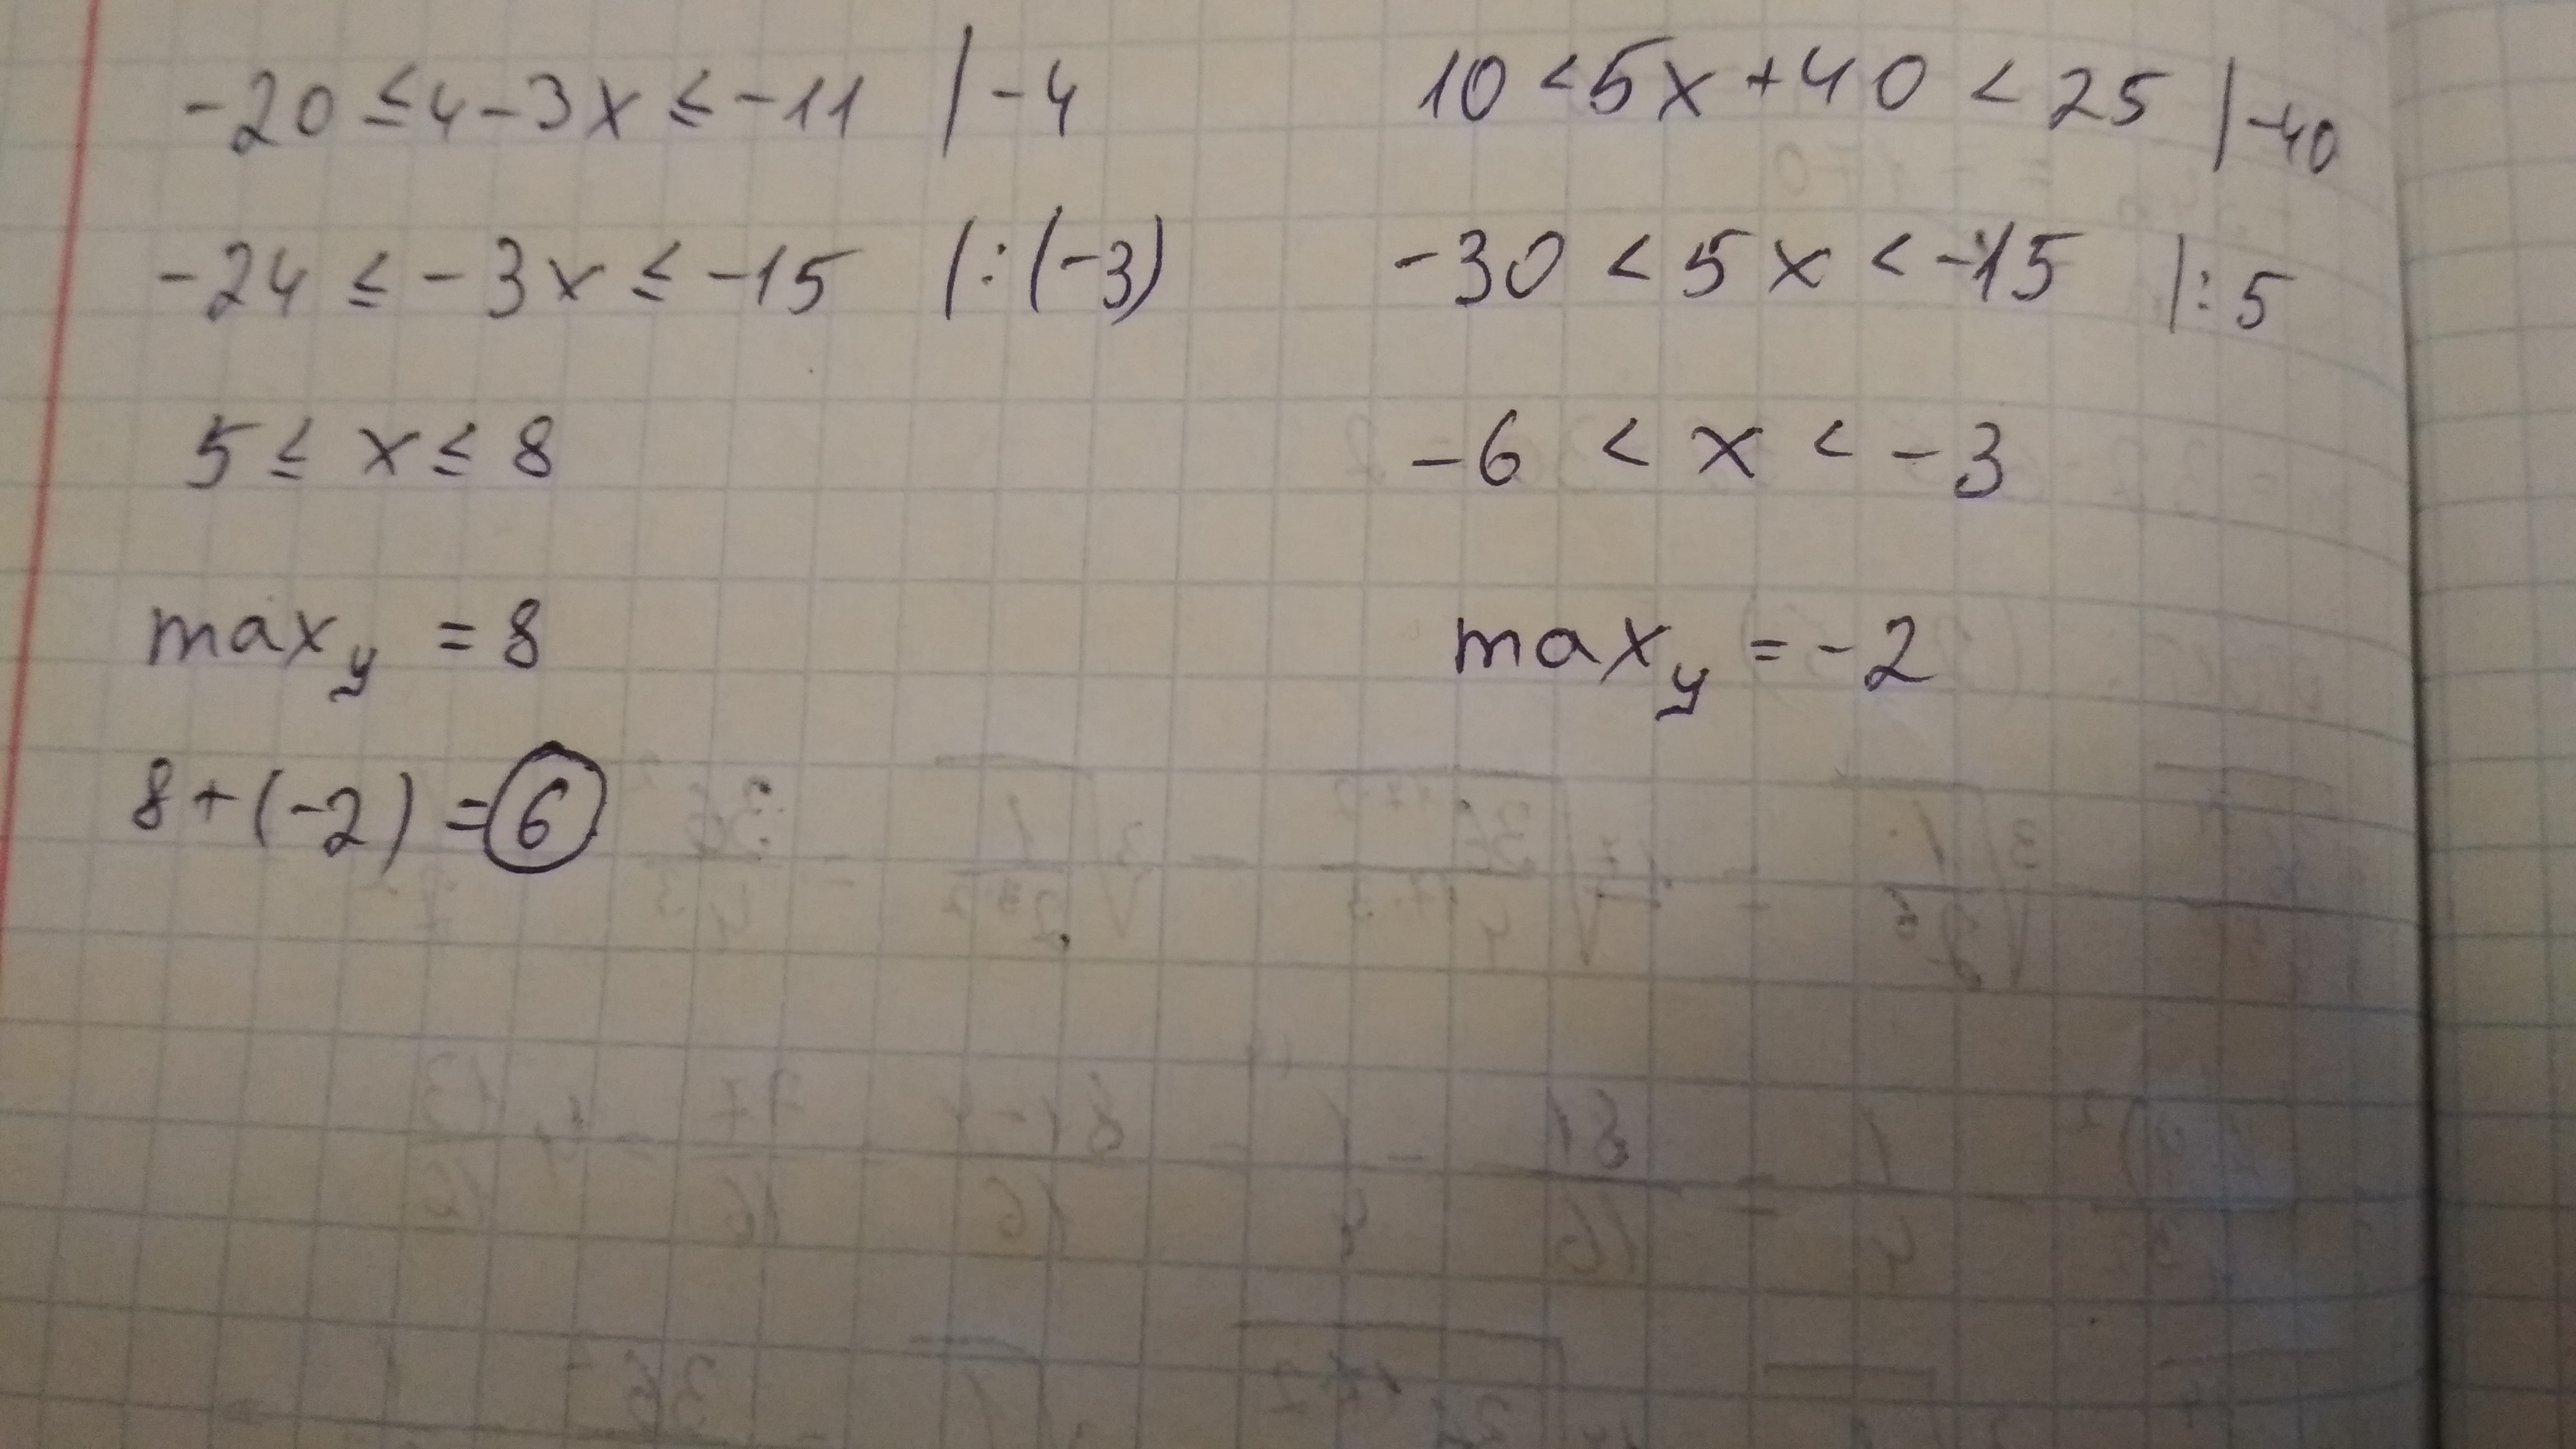 -20 ≤ 4 - 3x ≤ -11 | -4
-24 ≤ -3x ≤ -15 | : (-3)
5 ≤ x ≤ 8
max y = 8
8 + (-2) = 6
10 < 5x + 40 < 25 | -40
-30 < 5x < -15 | : 5
-6 < x < -3
max y = -2